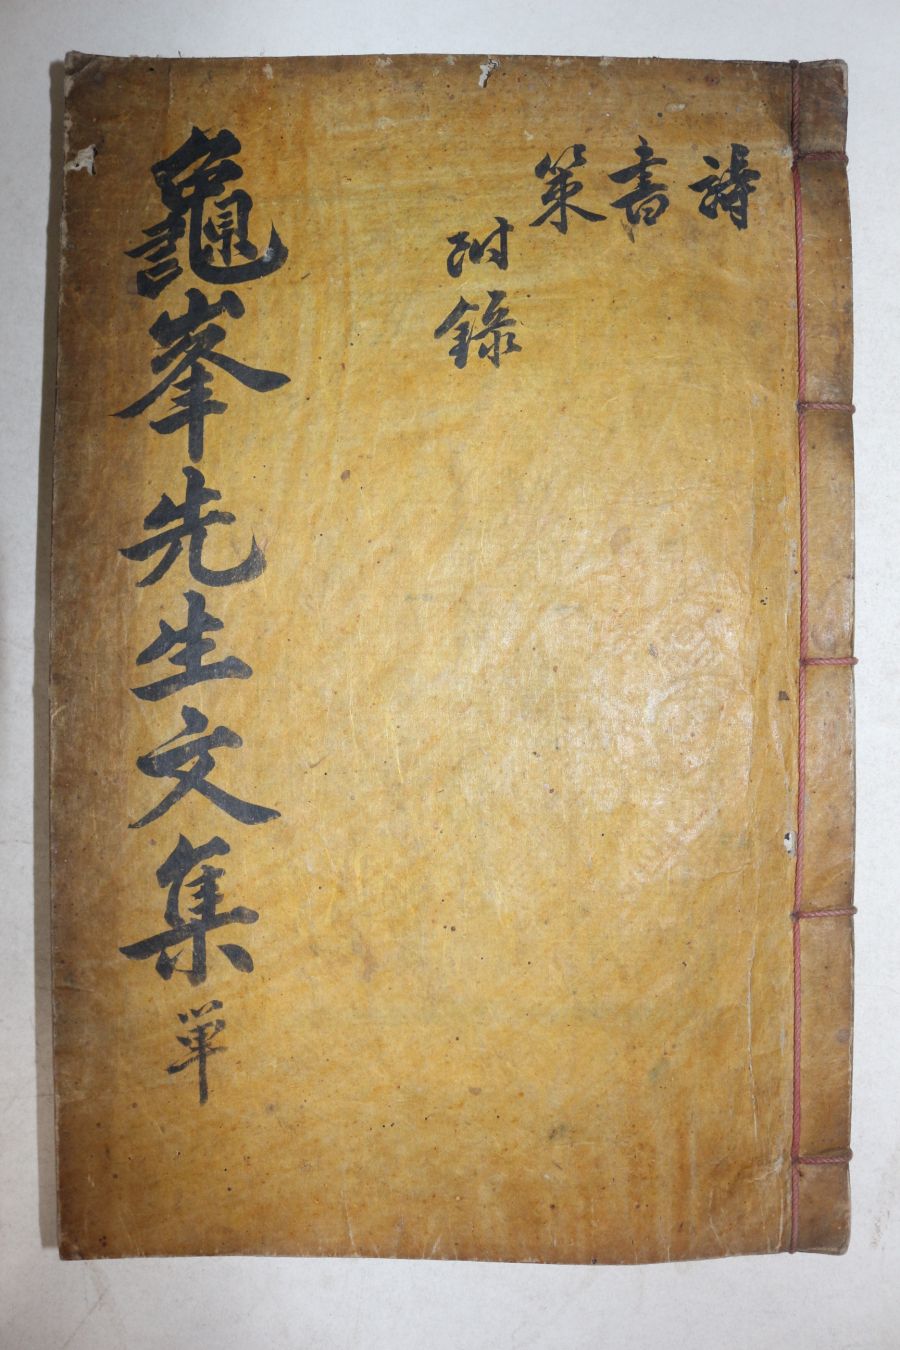 詩
書
策
附錄
龜峯先生文集 単